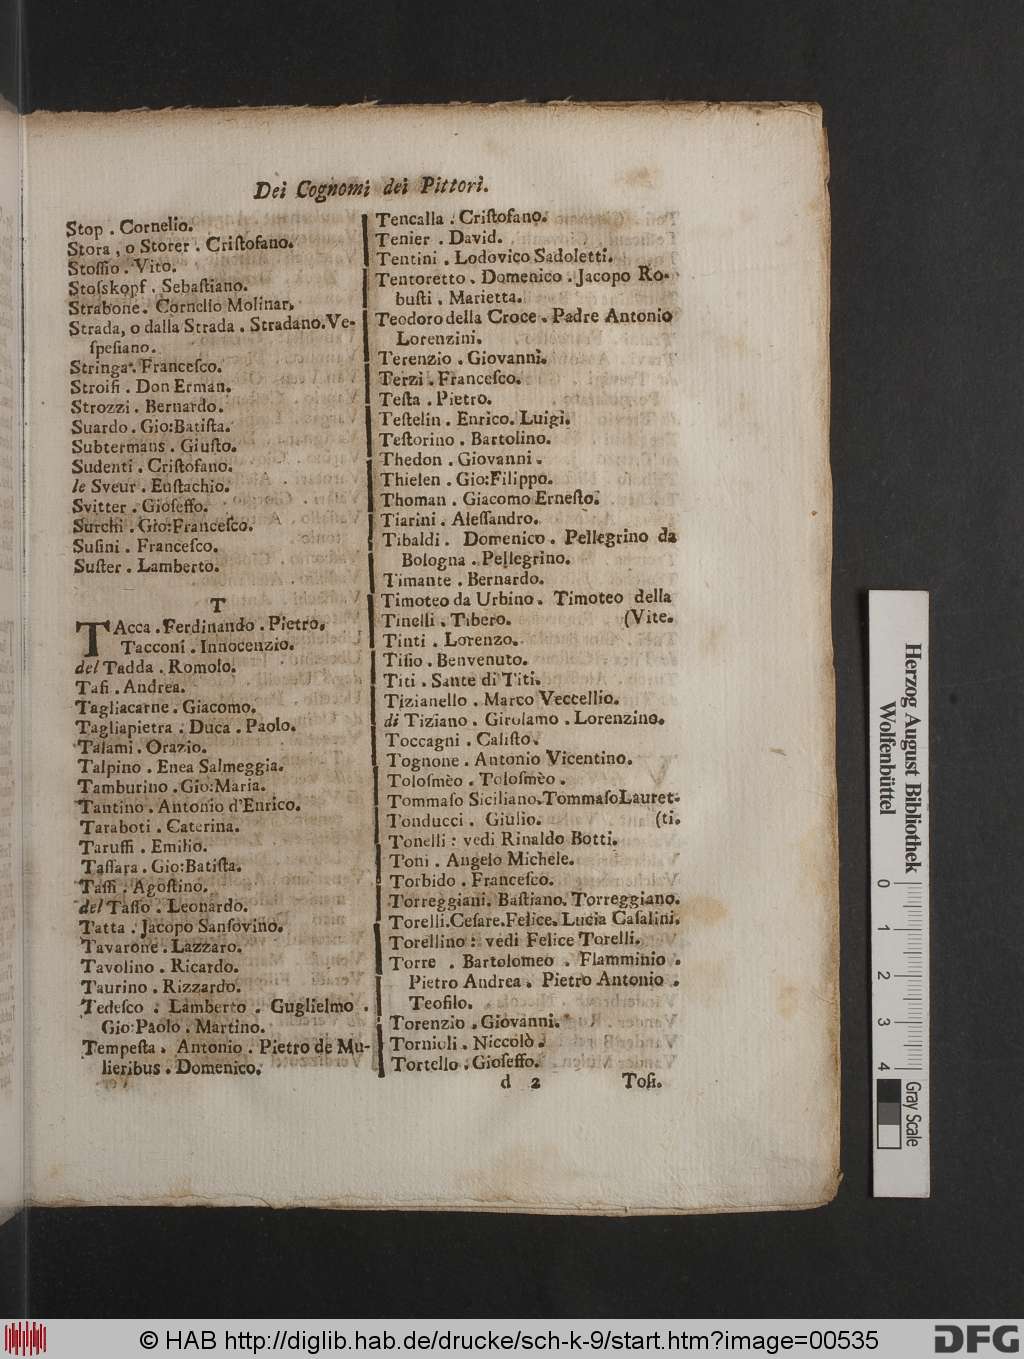 Dei Cognomi dei Pittori.
Stop . Cornelio.
Stora , o Storer . Criſtofano.
Stoſſio . Vito.
Stoſskopf . Sebaſtiano.
Strabone . Cornelio Molinar,
Strada, o dalla Strada . Stradano.Ve-
ſpeſiano.
Stringa . Franceſco.
Stroifi . Don Erman.
Strozzi . Bernardo.
Suardo . Gio:Batiſta.
Subtermans . Giuſto.
Sudenti . Criſtofano.
le Sveur . Euſtachio.
Svitter . Gioſeffo.
Surchi . Gio:Franceſco.
Suſini . Franceſco.
Suſter . Lamberto.
T
TAcca . Ferdinando . Pietro.
Tacconi . Innocenzio.
del Tadda . Romolo.
Tafi . Andrea.
Tagliacarne . Giacomo.
Tagliapietra : Duca . Paolo.
Talami . Orazio.
Talpino . Enea Salmeggia.
Tamburino . Gio:Maria.
Tantino . Antonio d'Enrico.
Taraboti . Caterina.
Taruffi . Emilio.
Taſſara . Gio:Batiſta.
Taſſi . Agoſtino.
del Taſſo . Leonardo.
Tatta . Jacopo Sanſovino.
Tavarone . Lazzaro.
Tavolino . Ricardo.
Taurino . Rizzardo.
Tedeſco : Lamberto . Guglielmo .
Gio:Paolo . Martino.
Tempeſta . Antonio . Pietro de Mu-
lieribus . Domenico.
Tencalla . Criſtofano.
Tenier . David.
Tentini . Lodovico Sadoletti.
Tentoretto . Domenico . Jacopo Ro-
buſti . Marietta.
Teodoro della Croce . Padre Antonio
Lorenzini.
Terenzio . Giovanni.
Terzi . Franceſco.
Teſta . Pietro.
Teſtelin . Enrico. Luigi.
Teſtorino . Bartolino.
Thedon . Giovanni .
Thielen . Gio:Filippo.
Thoman . Giacomo Erneſto.
Tiarini . Aleſſandro.
Tibaldi . Domenico . Pellegrino da
Bologna . Pellegrino.
Timante . Bernardo.
Timoteo da Urbino . Timoteo della
Tinelli . Tibero. (Vite.
Tinti . Lorenzo.
Tiſio . Benvenuto.
Titi . Sante di Titi.
Tizianello . Marco Veccellio.
di Tiziano . Girolamo . Lorenzino.
Toccagni . Caliſto.
Tognone . Antonio Vicentino.
Toloſmèo . Toloſmèo .
Tommaſo Siciliano.TommaſoLauret-
Tonducci . Giulio. (ti.
Tonelli : vedi Rinaldo Botti.
Toni . Angelo Michele.
Torbido . Franceſco.
Torreggiani. Baſtiano. Torreggiano.
Torelli.Ceſare.Felice. Lucia Caſalini.
Torellino : vedi Felice Torelli.
Torre . Bartolomeo . Flamminio .
Pietro Andrea . Pietro Antonio .
Teofilo.
Torenzio . Giovanni.
Tornioli . Niccolò .
Tortello . Gioſeffo.
d 2 Toſi.
Herzog August Bibliothek
Wolfenbüttel
0 1 2 3 4
Gray Scale
© HAB http://diglib.hab.de/drucke/sch-k-9/start.htm?image=00535
DFG